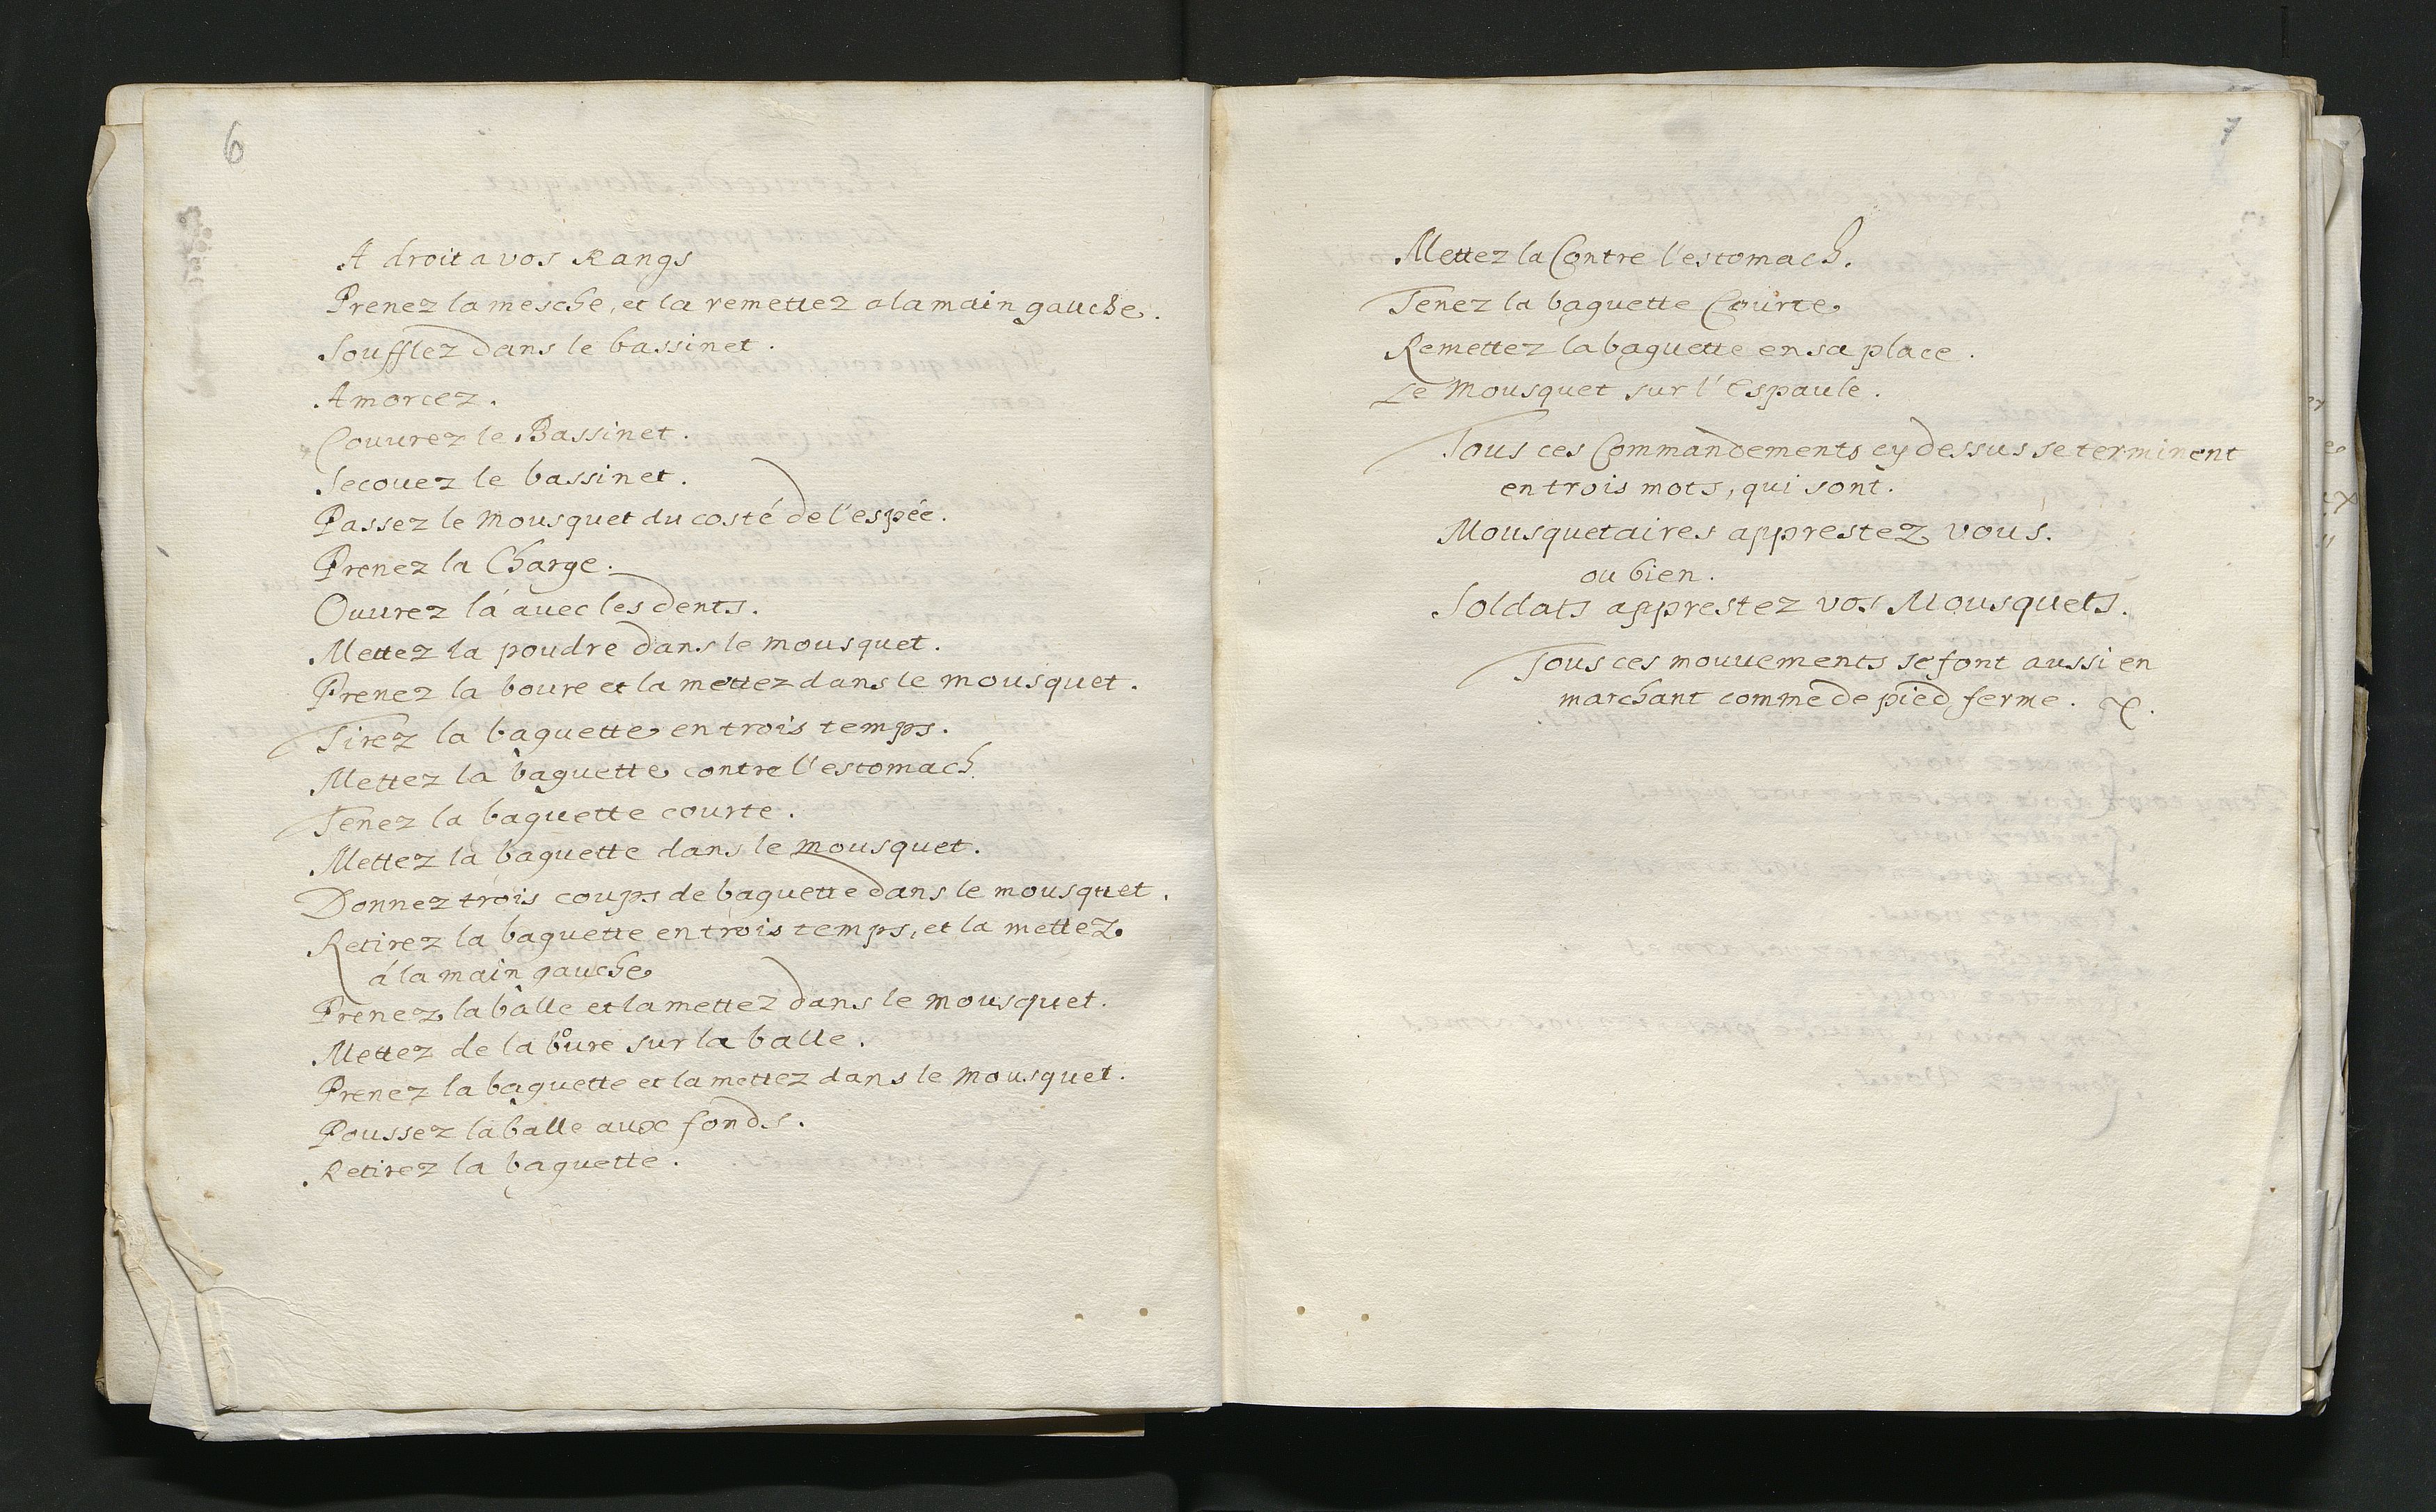 6
A droit a vos Rangs
Prenez la mesche, et la remettez a la main gauche.
Soufflez dans le bassinet.
Amorcez.
Couurez le Bassinet.
Secouez le bassinet.
Passez le Mousquet du costé de l'espée.
Prenez la Charge.
Ouurez lá auec les dents.
Mettez la poudre dans le mousquet.
Prenez la boure et la mettez dans le mousquet.
Tirez la baguette en trois temps.
Mettez la baguette contre l'estomach
Tenez la baguette courte.
Mettez la baguette dans le mousquet.
Donnez trois coups de baguette dans le mousquet.
Retirez la baguette en trois temps, et la mettez
á la main gauche
Prenez la balle et la mettez dans le mousquet.
Mettez de la boure sur la balle.
Prenez la baguette et la mettez dans le Mousquet.
Poussez la balle aux fonds.
Retirez la baguette.
7
Mettez la Contre l'estomach.
Tenez la baguette Courte
Remettez la baguette en sa place.
Le Mousquet sur l'Espaule.
Tous ces Commandements cy dessus se terminent
en trois mots, qui sont.
Mousquetaires apprestez vous.
ou bien.
Soldats apprestez vos Mousquets.
Tous ces mouuements se font aussi en
marchant comme de pied ferme.